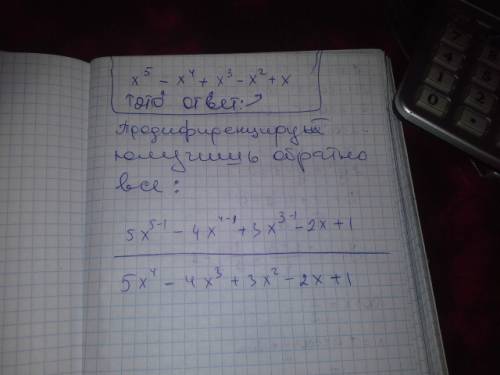 x⁵ - x⁴ + x³ - x² + x
ответ:
Продифиренцируй
получишь обратно
все :
5x⁵⁻¹ - 4x⁴⁻¹ + 3x³⁻¹ - 2x + 1
5x⁴ - 4x³ + 3x² - 2x + 1